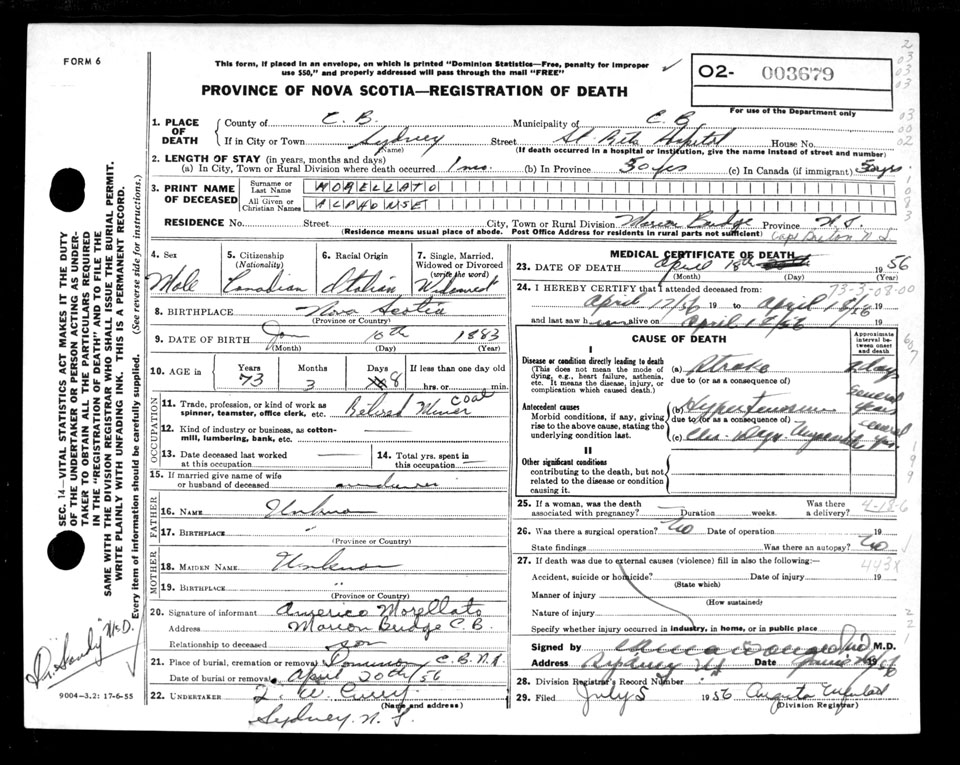 FORM 6
This form, if placed in an envelope, on which is printed "Dominion Statistics—Free, penalty for improper
use $50," and properly addressed will pass through the mail "FREE"
PROVINCE OF NOVA SCOTIA—REGISTRATION OF DEATH
02- 003679
For use of the Department only
1. PLACE OF DEATH
County of C. B. Municipality of C. B.
If in City or Town Sydney Street St. Rita Hospital House No.
(Name) (If death occurred in a hospital or institution, give the name instead of street and number)
2. LENGTH OF STAY (in years, months and days)
(a) In City, Town or Rural Division where death occurred 1 mo. (b) In Province 50 yrs (c) In Canada (if immigrant) 50 yrs
3. PRINT NAME OF DECEASED
Surname or Last Name MORELLATO
All Given or Christian Names ALPHONSE
RESIDENCE No. Street City, Town or Rural Division Marion Bridge Province N.S.
(Residence means usual place of abode. Post Office Address for residents in rural parts not sufficient) Cape Breton N.S.
4. Sex
Male
5. Citizenship (Nationality)
Canadian
6. Racial Origin
Italian
7. Single, Married, Widowed or Divorced (write the word)
Widowed
8. BIRTHPLACE Nova Scotia
(Province or Country)
9. DATE OF BIRTH Jan 10th 1883
(Month) (Day) (Year)
10. AGE in Years Months Days If less than one day old
73 3 8 hrs. or min.
11. Trade, profession, or kind of work as spinner, teamster, office clerk, etc. Retired Coal Miner
12. Kind of industry or business, as cotton-mill, lumbering, bank, etc.
13. Date deceased last worked at this occupation
14. Total yrs. spent in this occupation
OCCUPATION
15. If married give name of wife or husband of deceased
FATHER
16. NAME Unknown
17. BIRTHPLACE "
(Province or Country)
MOTHER
18. MAIDEN NAME Unknown
19. BIRTHPLACE "
(Province or Country)
20. Signature of informant Americo Morellato
Address Marion Bridge C.B.
Relationship to deceased son
21. Place of burial, cremation or removal Dominion C.B. N.S.
Date of burial or removal April 20th/56
22. UNDERTAKER
(Name and address)
Sydney N.S.
MEDICAL CERTIFICATE OF DEATH
23. DATE OF DEATH April 18th 1956
(Month) (Day) (Year)
73-3-08-00
24. I HEREBY CERTIFY that I attended deceased from:
April 17/56 19 to April 18/56 19
and last saw him alive on April 18/56 19
CAUSE OF DEATH
Approximate interval between onset and death
I
Disease or condition directly leading to death
(This does not mean the mode of dying, e.g., heart failure, asthenia, etc. It means the disease, injury, or complication which caused death.)
(a) Stroke
due to (or as a consequence of)
Antecedent causes
Morbid conditions, if any, giving rise to the above cause, stating the underlying condition last.
(b) Hypertension several years
due to (or as a consequence of)
(c)
II
Other significant conditions
contributing to the death, but not related to the disease or condition causing it.
25. If a woman, was the death associated with pregnancy? Duration weeks. Was there a delivery?
4-18-6
26. Was there a surgical operation? No Date of operation 19
State findings Was there an autopsy? No
27. If death was due to external causes (violence) fill in also the following:
443X
Accident, suicide or homicide? Date of injury 19
(State which)
Manner of injury
(How sustained)
Nature of injury
Specify whether injury occurred in industry, in home, or in public place
Signed by M.D.
Address Sydney NS Date
28. Division Registrar's Record Number
29. Filed July 5 1956
(Division Registrar)
SEC. 14—VITAL STATISTICS ACT MAKES IT THE DUTY
OF THE UNDERTAKER OR PERSON ACTING AS UNDER-
TAKER TO OBTAIN ALL THE PARTICULARS REQUIRED
IN THE "REGISTRATION OF DEATH" AND TO FILE THE
SAME WITH THE DIVISION REGISTRAR WHO SHALL ISSUE THE BURIAL PERMIT.
WRITE PLAINLY WITH UNFADING INK. THIS IS A PERMANENT RECORD.
Every item of information should be carefully supplied. (See reverse side for instructions.)
9004-3,2: 17-6-55